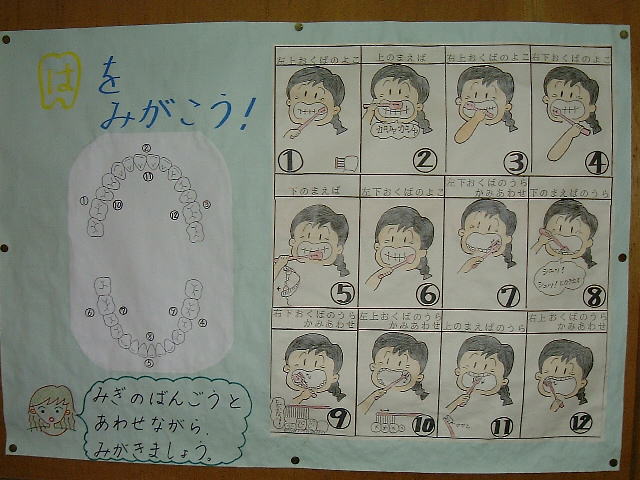 はを
みがこう!
左上おくばのよこ
上のまえば
右上おくばのよこ
右下おくばのよこ
①
②
③
④
下のまえば
左下おくばのよこ
左下おくばのうら
かみあわせ
下のまえばのうら
シュッ!
⑤
⑥
⑦
⑧
右下おくばのうら
かみあわせ
左上おくばのうら
かみあわせ
上のまえばのうら
右上おくばのうら
かみあわせ
⑨
⑩
⑪
⑫
②
⑪
①
⑩
⑫
③
⑥
⑦
⑨
④
⑧
⑤
みぎのばんごうと
あわせながら、
みがきましょう。